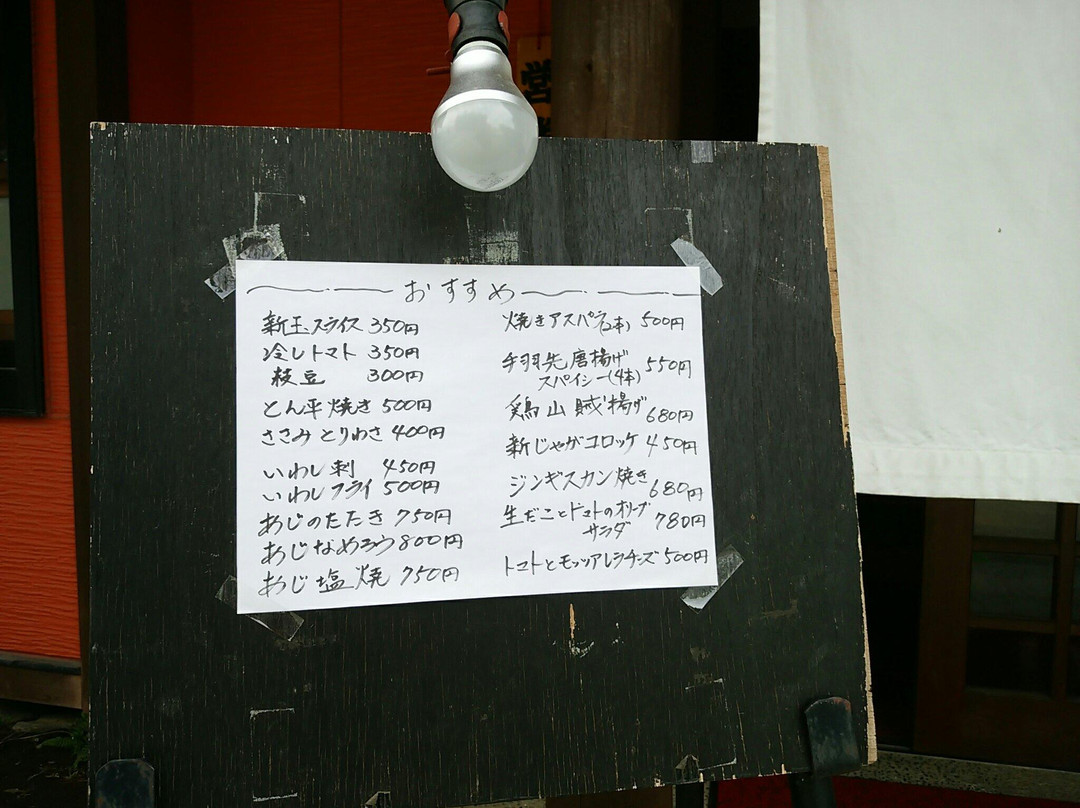 営
おすすめ
新玉スライス 350円
冷しトマト 350円
枝豆 300円
とん平焼き 500円
ささみとりわさ 400円
いわし刺 450円
いわしフライ 500円
あじのたたき 750円
あじなめろう 800円
あじ塩焼 750円
焼きアスパラ(2本) 500円
手羽先唐揚げ 550円
スパイシー(4本)
鶏山賊揚げ 680円
新じゃがコロッケ 450円
ジンギスカン焼き 680円
生だことトマトのオリーブ
サラダ 780円
トマトとモッツアレラチーズ 500円